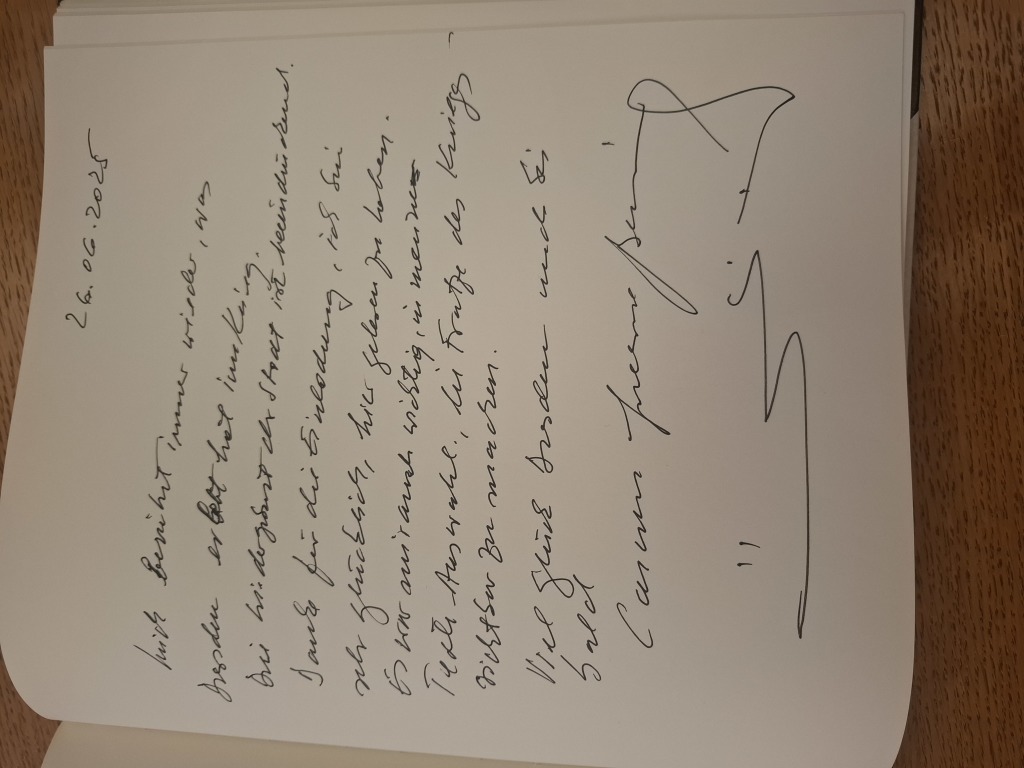 26.06.2025
Mich berührt immer wieder, was
Dresden erlebt hat im Krieg.
Die Wiedergeburt der Stadt ist beeindruckend.
Danke für die Einladung, ich bin
sehr glücklich, hier gelesen zu haben.
Es war mir auch wichtig, in meiner
Text-Auswahl, die Fratze des Kriegs
sichtbar zu machen.
Viel Glück Dresden und bis
bald